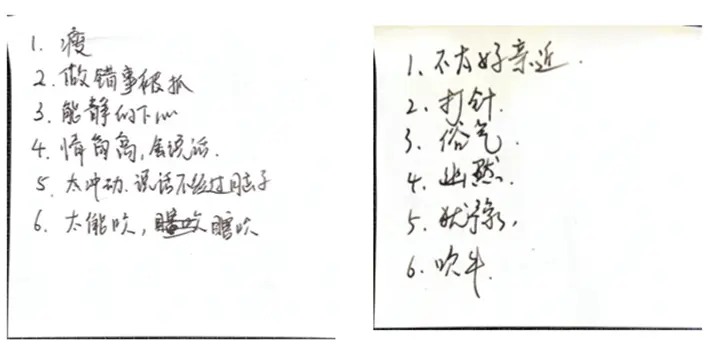 1. 瘦
2. 做错事被抓
3. 能静的下心
4. 情商高,会说话.
5. 太冲动.说话不经过脑子
6. 太能吹,瞎吹
1. 不太好亲近.
2. 打针.
3. 俗气.
4. 幽默.
5. 犹豫,
6. 吹牛.